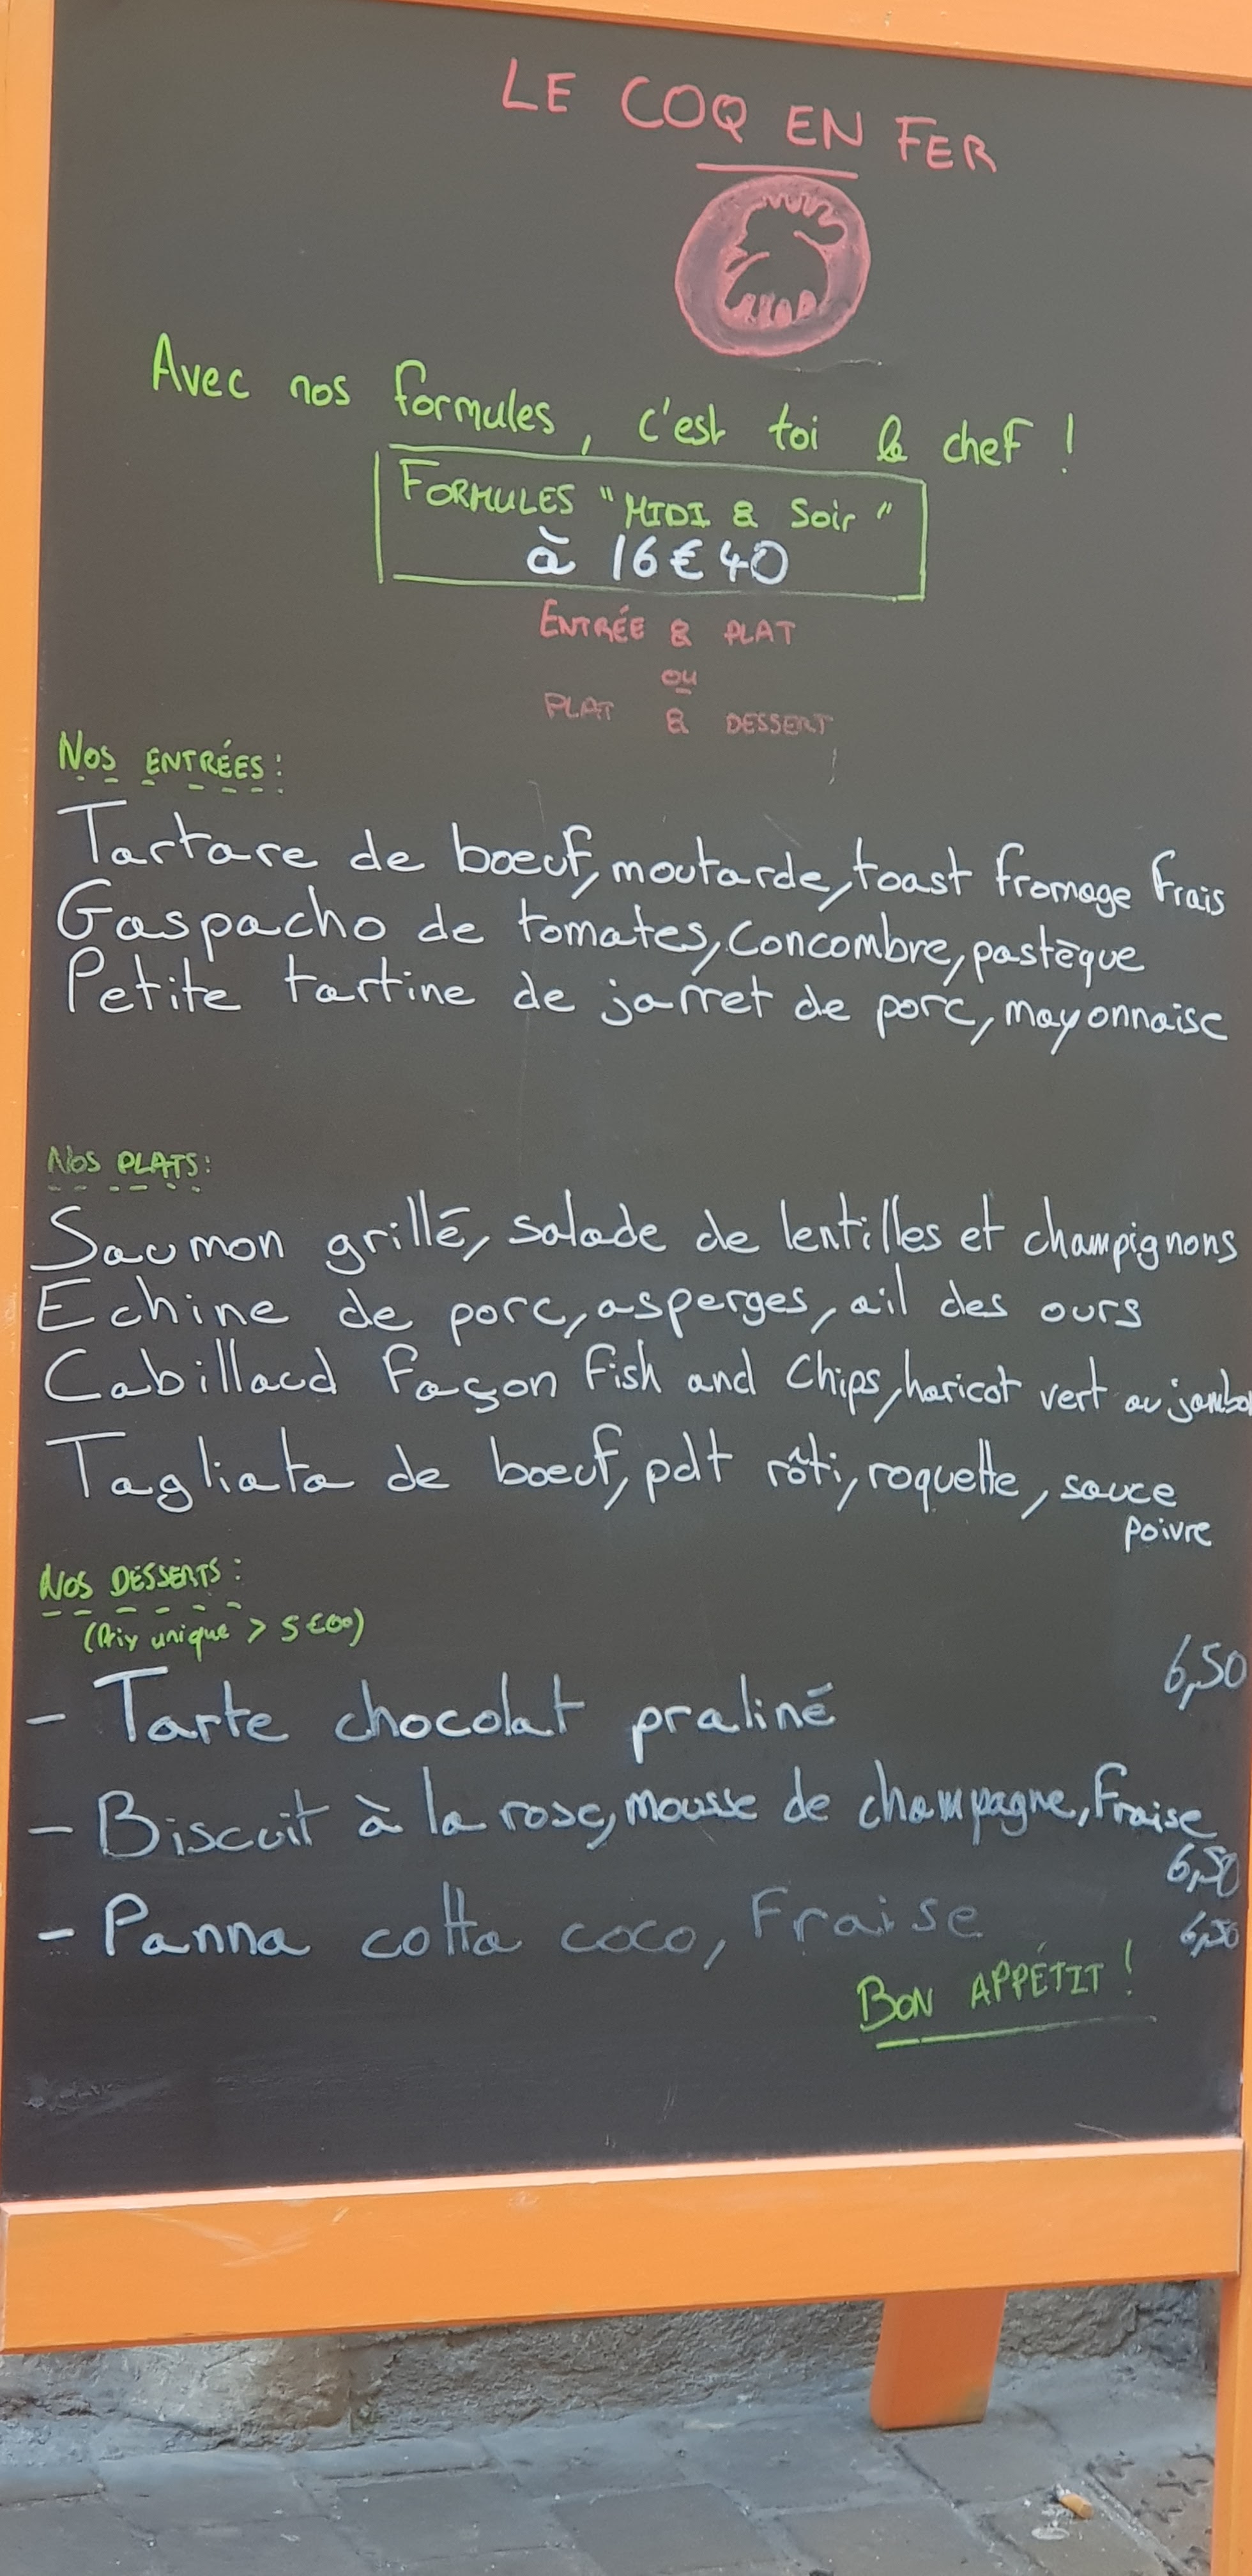 LE COQ EN FER
Avec nos formules, c'est toi le chef !
FORMULES "MIDI & Soir"
à 16€40
ENTRÉE & PLAT
ou
PLAT & DESSERT
NOS ENTRÉES :
Tartare de bœuf, moutarde, toast fromage frais
Gaspacho de tomates, concombre, pastèque
Petite tartine de jarret de porc, mayonnaise
NOS PLATS :
Saumon grillé, salade de lentilles et champignons
Echine de porc, asperges, ail des ours
Cabillaud façon fish and chips, haricot vert au jambon
Tagliata de bœuf, pdt rôti, roquette, sauce
poivre
NOS DESSERTS :
(Prix unique > 5€00)
- Tarte chocolat praliné 6,50
- Biscuit à la rose, mousse de champagne, Fraise
6,50
- Panna cotta coco, Fraise 6,50
BON APPÉTIT !